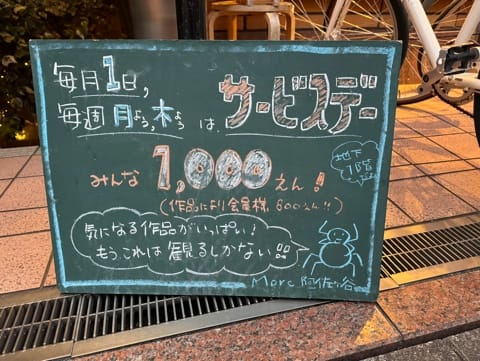 毎月1日,
毎週月よう,木ようは、サービスデー
みんな1,000えん!
(作品により会員様、800えん!!)
地下1階
気になる作品がいっぱい!
もう、これは観るしかない!!
Morc 阿佐ヶ谷